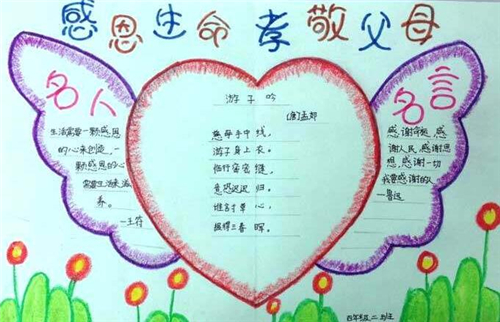 感恩生命孝敬父母
名人
生活需要一颗感恩
的心来创造，一
颗感恩的心
需要生活来滋
养。
—王符
游子吟
(唐)孟郊
慈母手中线，
游子身上衣。
临行密密缝，
意恐迟迟归。
谁言寸草心，
报得三春晖。
名言
感谢命运，感
谢人民，感谢思
想，感谢一切
我要感谢的人
—鲁迅
四年级二班